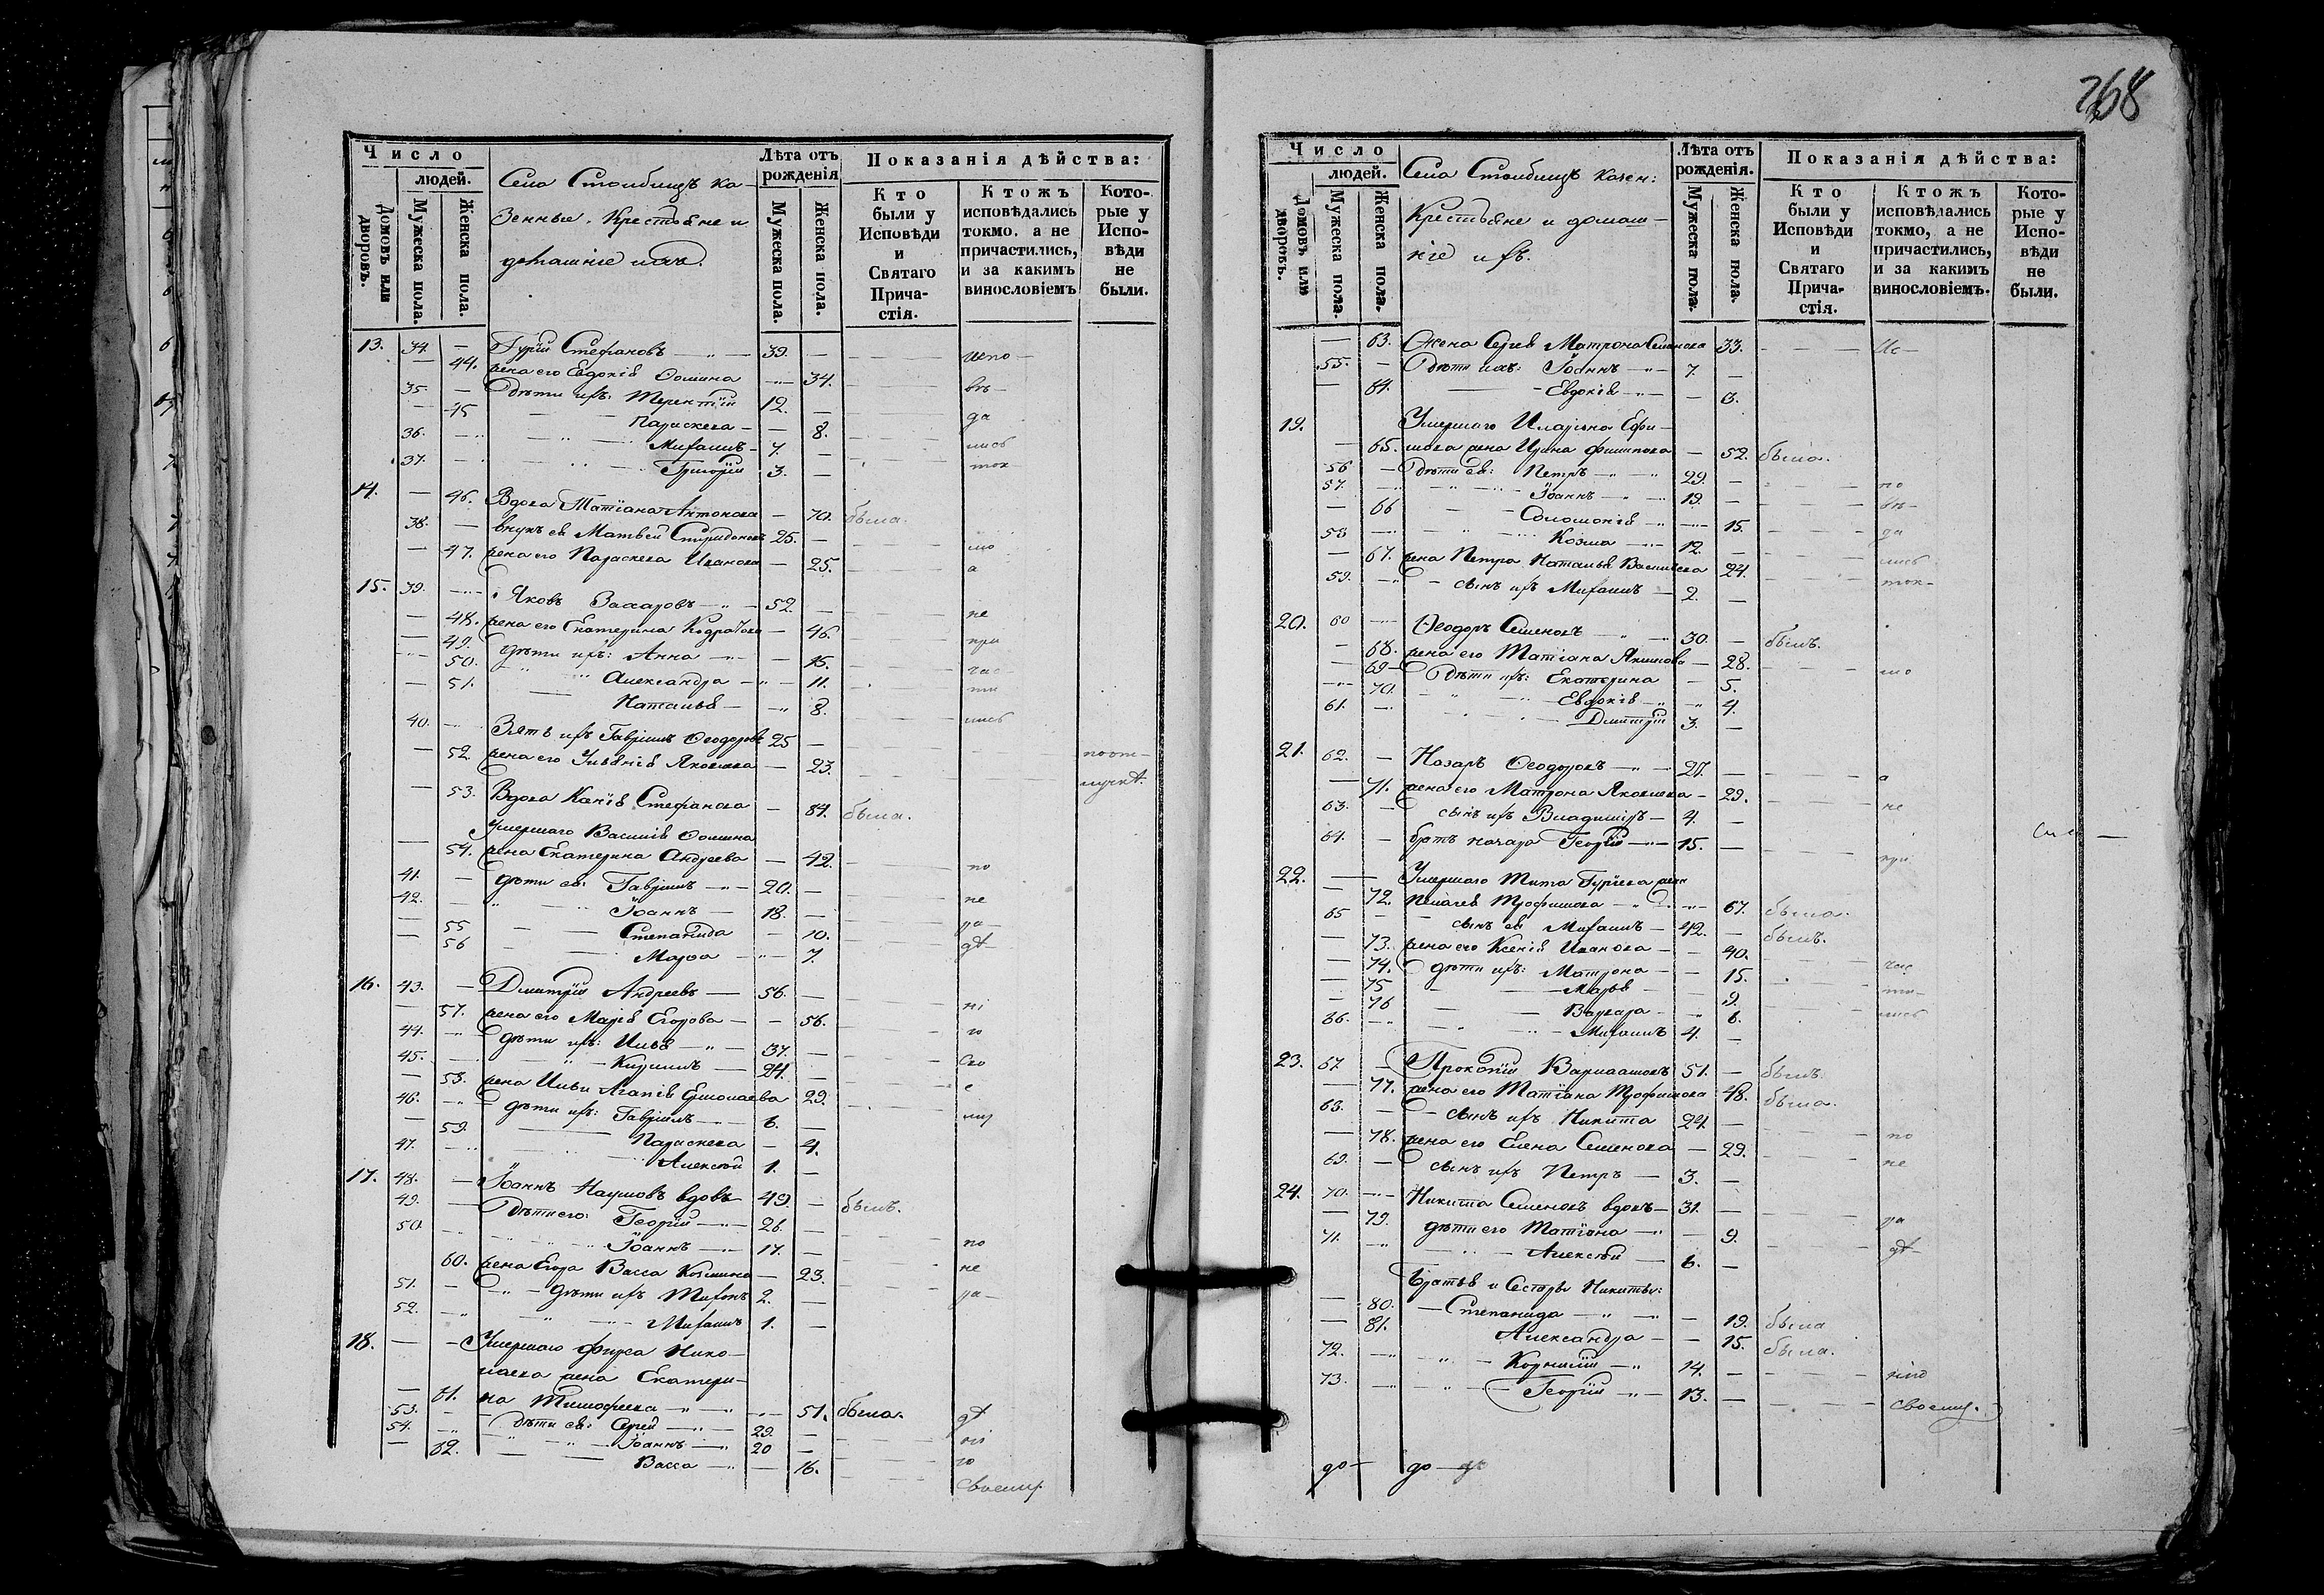 Число
людей.
Домовъ или дворовъ.
Мужеска пола.
Женска пола.
Села Столбищъ ка-
зенные Крестьяне и
домашніе ихъ.
Лѣта отъ рожденія
Мужеска пола.
Женска пола.
Показанія дѣйства:
Кто были у Исповѣди и Святаго Прича-стія.
Ктожъ исповѣдались токмо, а не причастились, и за какимъ винословіемъ
Кото-рые у Испо-вѣди не были.
13. 34. — Гурій Стефановъ — 39. — испо-
— 44. жена его Евдокія Ѳомина — 34. вѣ-
35. — дѣти ихъ: Терентій 12. —
— 45 Параскева — 8. да
36. — Михаилъ — 7. — лись
37. — Григорій 3. — ток
14. — 46. Вдова Татіана Антонова — 70. была.
38. — внукъ ея Матвей Спиридоновъ 25. — мо
— 47. жена его Параскева Иванова — 25. а
15. 39. — Яковъ Захаровъ — 52. — не
— 48. жена его Екатерина Кодратова — 46. при
— 49. дѣти ихъ: Анна — 15. час
50. Александра — 11. ти
— 51. Наталья — 8. лись
40. — Зять ихъ Гавріилъ Ѳеодоровъ 25 —
— 52. жена его Ульянія Яковлева — 23. по от-
лучкѣ.
— 53. Вдова Капія Стефанова — 84. была.
Умершаго Василія Ѳомина
— 54. жена Екатерина Андреева — 42. по
41. — дѣти ея: Гавріилъ — 20. — не
42. — Іоаннъ — 18. —
— 55 Степанида — 10. ра-
— 56 Марѳа — 7. дѣ-
16. 43. — Димитрій Андреевъ — 56. — ні
— 57. жена его Марія Егорова — 56. ю
44. — дѣти ихъ: Илья — 37. —
45. — Кирилъ — 24. — сво
— 58. жена Ильи Агапія Ермолаева 29. е
46. — дѣти ихъ: Гавріилъ — 6. — му
— 59. Параскева — 4.
47. — Алексѣй 1. —
17. 48. — Іоаннъ Наумовъ вдовъ 49. — былъ.
49. — дѣти его: Георгій — 26. —
50. — Іоаннъ — 17. — по
60. жена Егора Васса Козмина — 23. не
51. — дѣти ихъ Тихонъ 2. — ра-
52. — Михаилъ 1. —
18. — — Умершаго Фирса Нико-
лаева жена Екатери-
— 61. на Тимоѳеева — 51. была. дѣ
53. — дѣти ея: Сергей — 29. —
54. — Іоаннъ — 20 — ні
— 62. Васса — 16. ю
своему.
268
Число
людей.
Домовъ или дворовъ.
Мужеска пола.
Женска пола.
Села Столбищъ казен:
Крестьяне и домаш-
ніе ихъ.
Лѣта отъ рожденія.
Мужеска пола.
Женска пола.
Показанія дѣйства:
Кто были у Исповѣди и Святаго Прича-стія.
Ктожъ исповѣдались токмо, а не причастились, и за какимъ винословіемъ.
Кото-рые у Испо-вѣди не были.
— 63. Жена Сергея Матрона Семенова 33. Ис-
55. — дѣти ихъ: Іоаннъ — 7. —
— 64. Евдокія — 3.
19. Умершаго Иларіона Ефи-
— 65. мова жена Ирина Филипова — 52. была.
56 — дѣти ея: Петръ — 29. — по
57. — Іоаннъ — 19. — вѣ-
— 66 Соломонія — 15. да
58 — Козма — 12. —
— 67. жена Петра Наталья Васильева 24. лись
59. — сынъ ихъ Михаилъ — 2. — ток-
20. 60 — Ѳеодоръ Семеновъ — 30. — былъ.
— 68. жена его Татіана Якимова — 28. мо
— 69 дѣти ихъ: Екатерина — 5.
— 70. Евдокія — 4.
61. — Димитрій 3. —
21. 62. — Назаръ Ѳеодоровъ — 27. — а
— 71. жена его Матрона Яковлева — 29. не
63. — сынъ ихъ Владиміръ — 4. —
64. — братъ Назара Георгій — 15. — при
22. — Умершаго Тита Гурьева жена
— 72. Пелагея Трофимова — 67. была.
65 — сынъ ея Михаилъ — 42. — былъ.
— 73. жена его Ксенія Иванова — 40. час
— 74. дѣти ихъ: Матрона — 15. ти-
— 75 Марья — 9. лись
— 76 Варвара — 6.
66. — Михаилъ 4. —
23. 67 — Прокопій Варлаамовъ 51. — былъ.
— 77. жена его Татіана Трофимова 48. была.
68. — сынъ ихъ Никита 24. — по
— 78. жена его Елена Семенова — 29. не
69. — сынъ ихъ Петръ — 3. —
24. 70. — Никита Семеновъ вдовъ — 31. — ра
— 79. дѣти его Татіана — 9. дѣ-
71. — Алексѣй — 6. —
Братья и Сестры Никиты:
— 80. — Степанида — 19. была
— 81. Александра — 15. была.
72. — Корнилій — 14. — нію
73. — Георгій — 13. — своему.
до — до